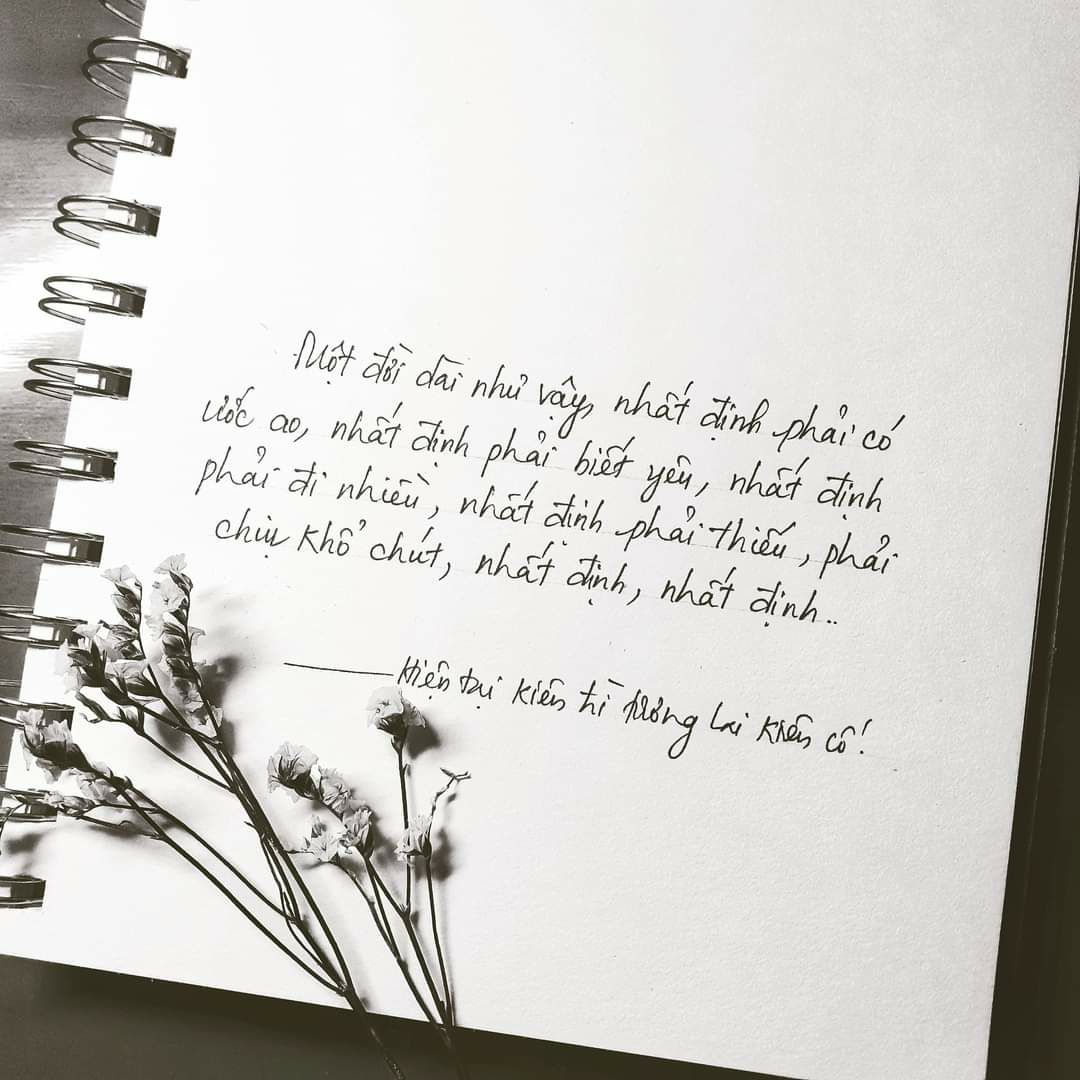 Một đời dài như vậy, nhất định phải có
ước ao, nhất định phải biết yêu, nhất định
phải đi nhiều, nhất định phải thiếu, phải
chịu khổ chút, nhất định, nhất định..
Hiện tại kiên trì tương lai kiên cố!